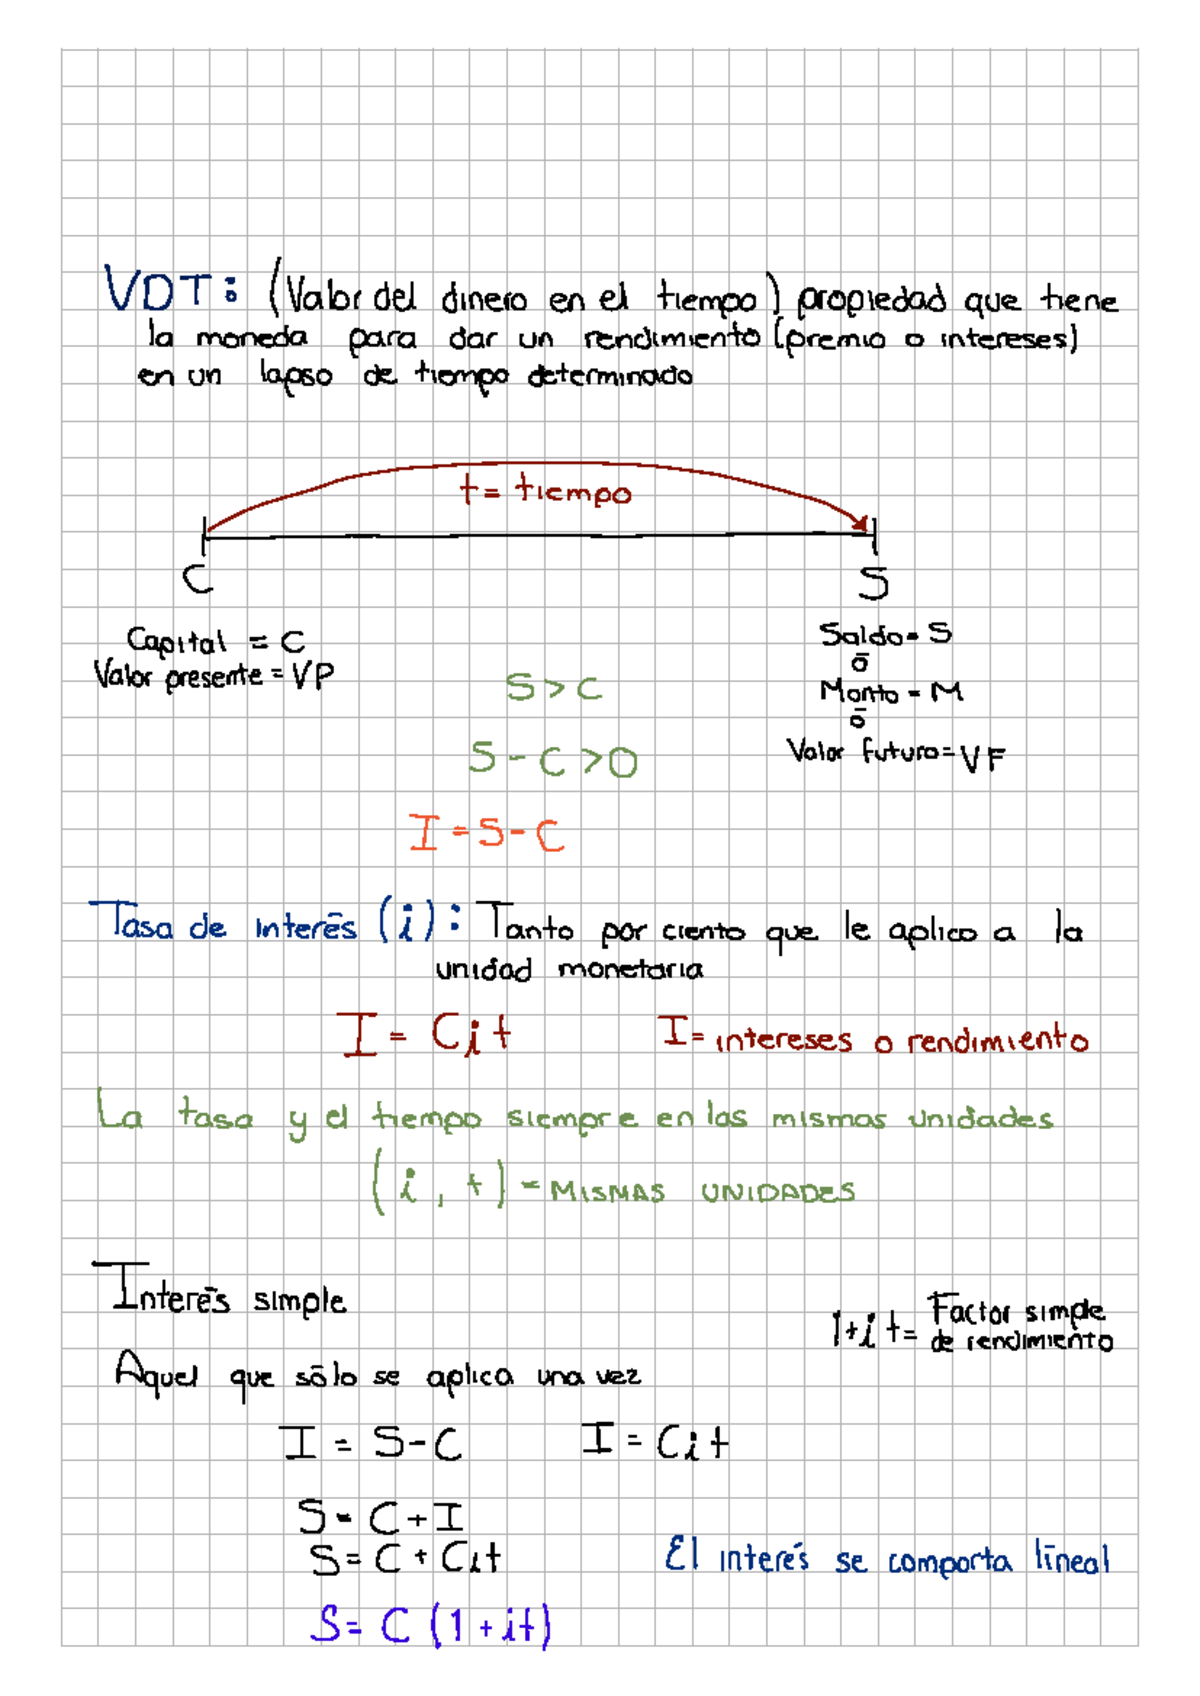 VDT: (Valor del dinero en el tiempo) propiedad que tiene
la moneda para dar un rendimiento (premio o intereses)
en un lapso de tiempo determinado
t = tiempo
C
S
Capital = C
Valor presente = VP
Saldo = S
ó
Monto = M
ó
Valor futuro = VF
S > C
S - C > 0
I = S - C
Tasa de interés (i): Tanto por ciento que le aplico a la
unidad monetaria
I = Cit
I = intereses o rendimiento
La tasa y el tiempo siempre en las mismas unidades
(i, t) = MISMAS UNIDADES
Interés simple
1+it = Factor simple
de rendimiento
Aquel que sólo se aplica una vez
I = S - C
I = Cit
S = C + I
S = C + Cit
El interés se comporta líneal
S = C (1 + it)